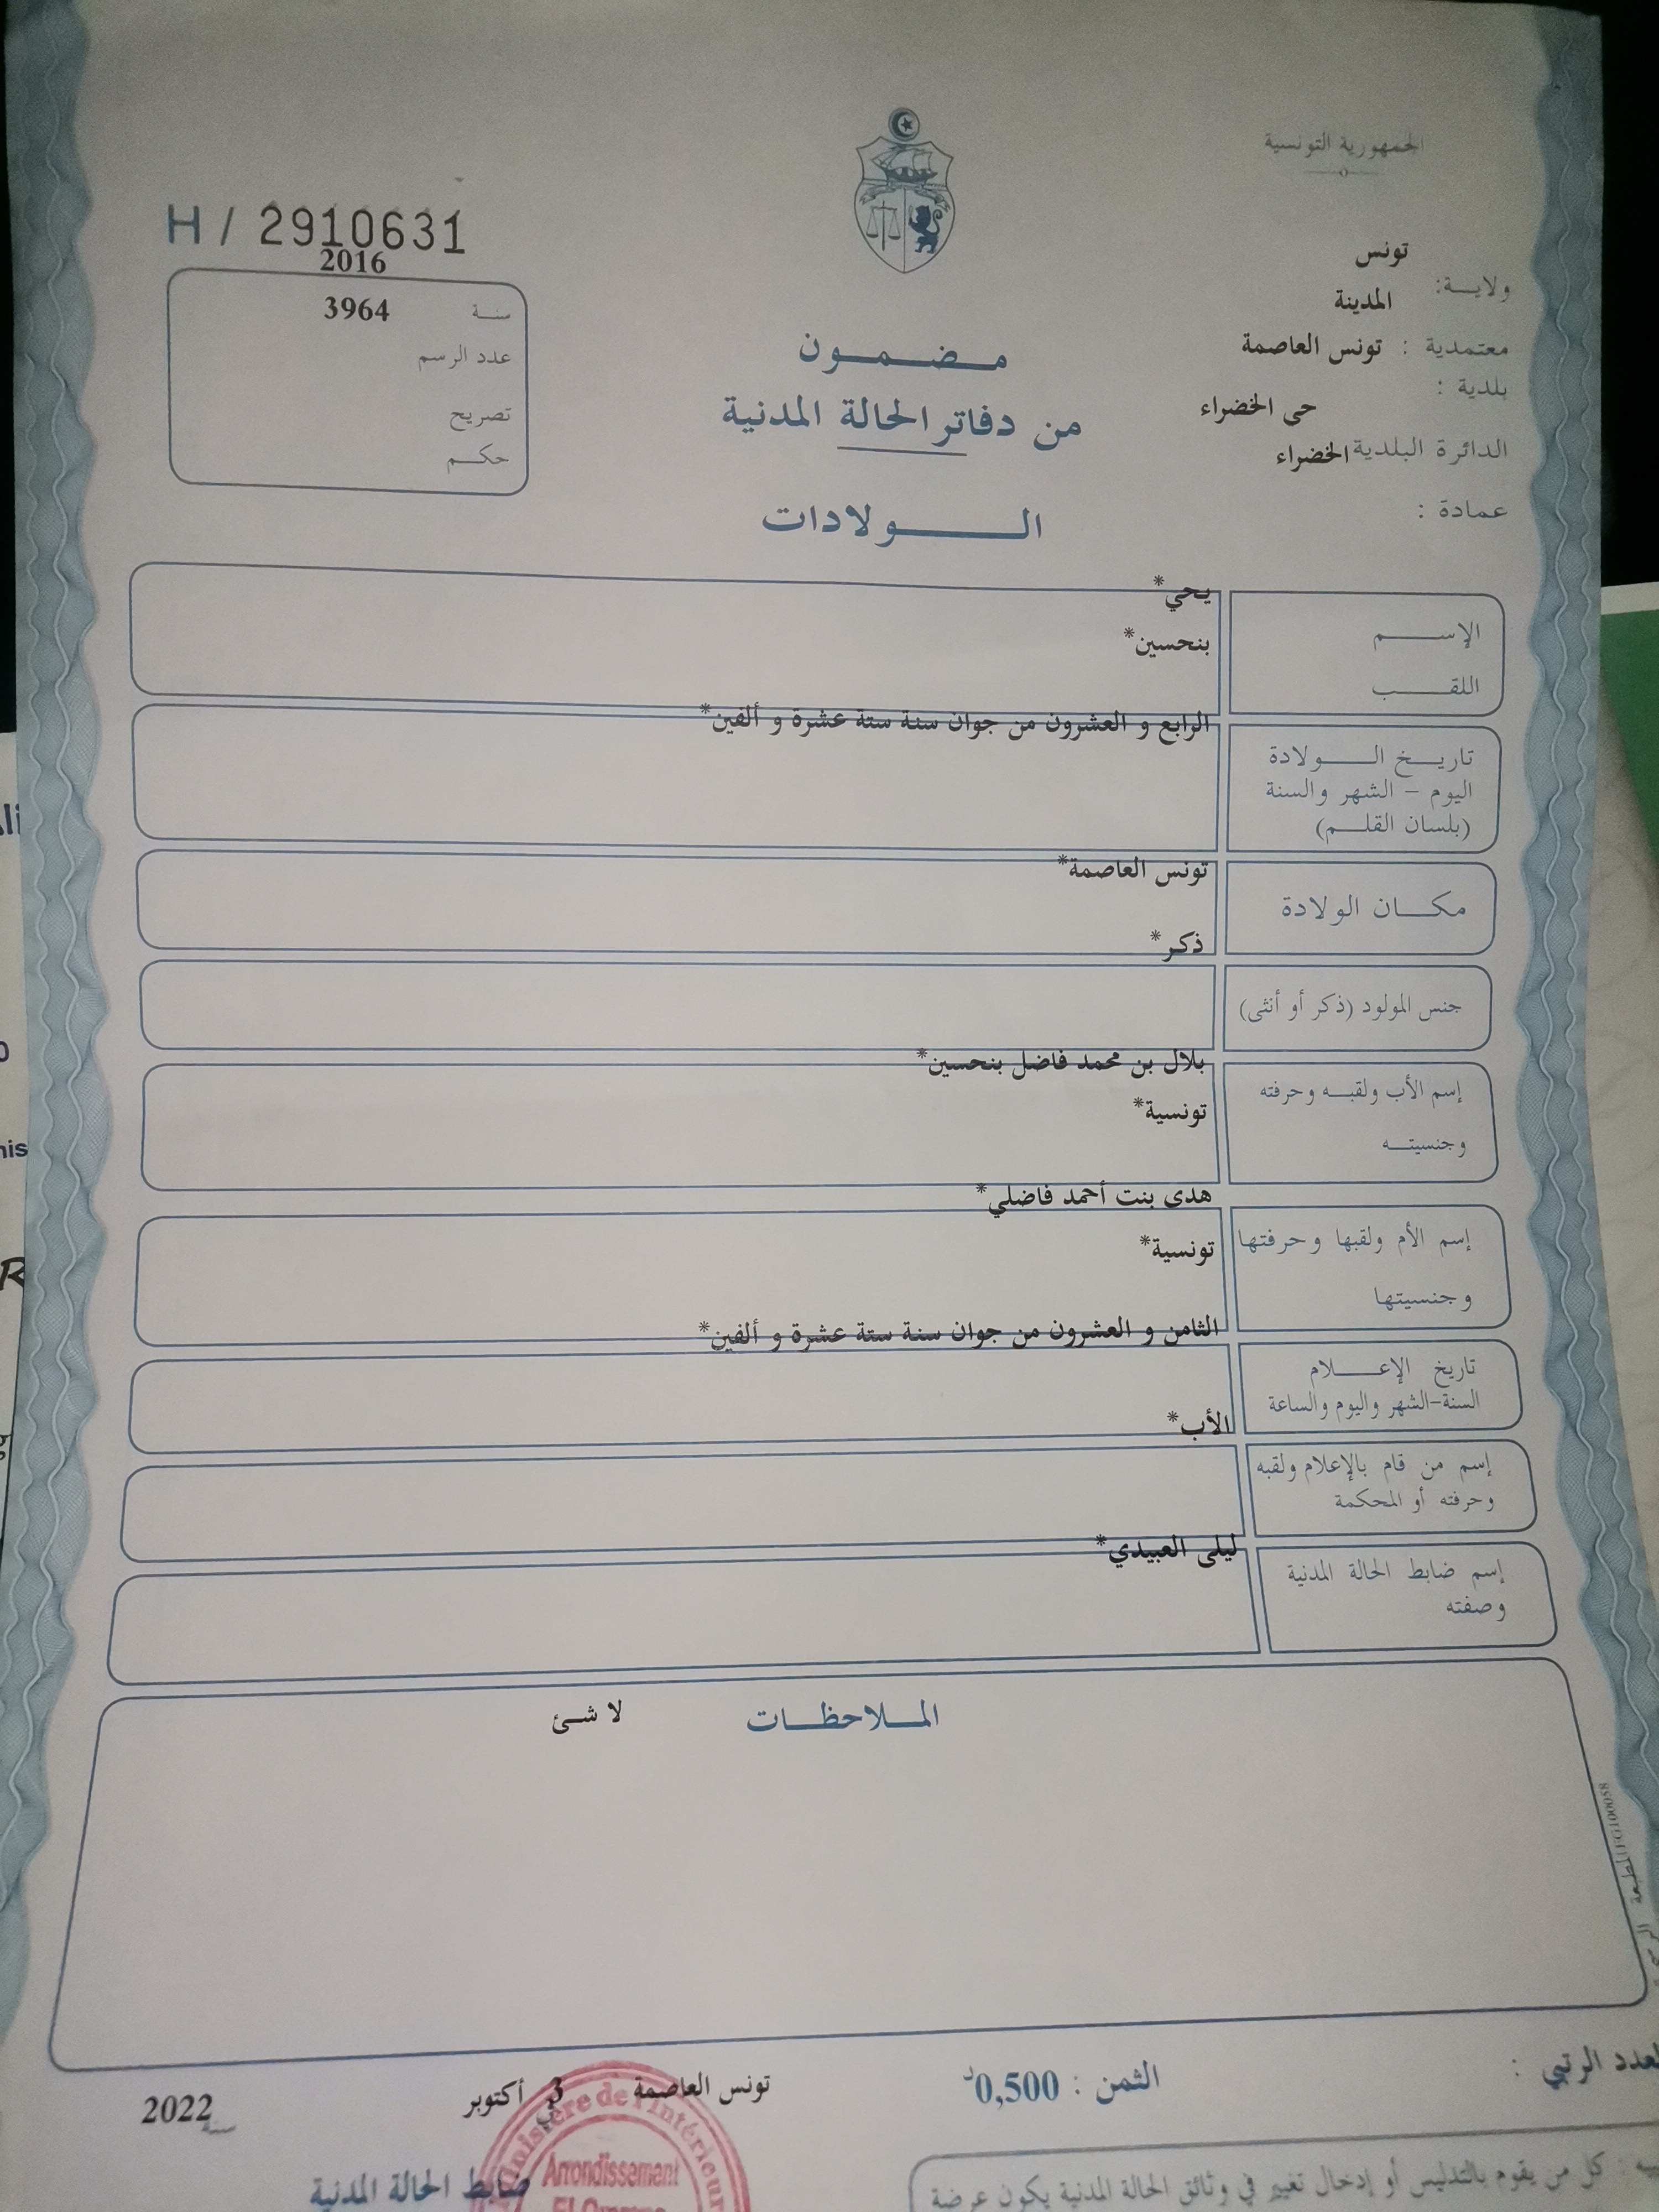 الجمهورية التونسية
تونس
ولايـــة:
المدينة
معتمدية : تونس العاصمة
بلدية :
حى الخضراء
الدائرة البلدية الخضراء
عمادة :
H / 2910631
2016
سنـة 3964
عدد الرسم
تصريح
حكــم
مـضـمـون
من دفاتر الحالة المدنية
الـــولادات
يحي*
الإســـم
بنحسين*
اللقـــب
الرابع و العشرون من جوان سنة ستة عشرة و ألفين*
تاريـخ الــولادة
اليوم - الشهر والسنة
(بلسان القلــم)
تونس العاصمة*
مكــان الولادة
ذكر*
جنس المولود (ذكر أو أنثى)
بلال بن محمد فاضل بنحسين*
إسم الأب ولقبــه وحرفته
تونسية*
وجنسيتــه
هدى بنت أحمد فاضلي*
إسم الأم ولقبها وحرفتها
تونسية*
وجنسيتها
الثامن و العشرون من جوان سنة ستة عشرة و ألفين*
تاريخ الإعـــلام
السنة-الشهر واليوم والساعة
الأب*
إسم من قام بالإعلام ولقبه
وحرفته أو المحكمة
ليلى العبيدي*
إسم ضابط الحالة المدنية
وصفته
المــلاحظــات
لا شئ
FG100058
العدد الرتبي :
الثمن : 0,500د
تونس العاصمة في 3 أكتوبر سنة 2022
ضابط الحالة المدنية
Ministère de l'Intérieur
Arrondissement
كل من يقوم بالتدليس أو إدخال تغيير في وثائق الحالة المدنية يكون عرضة